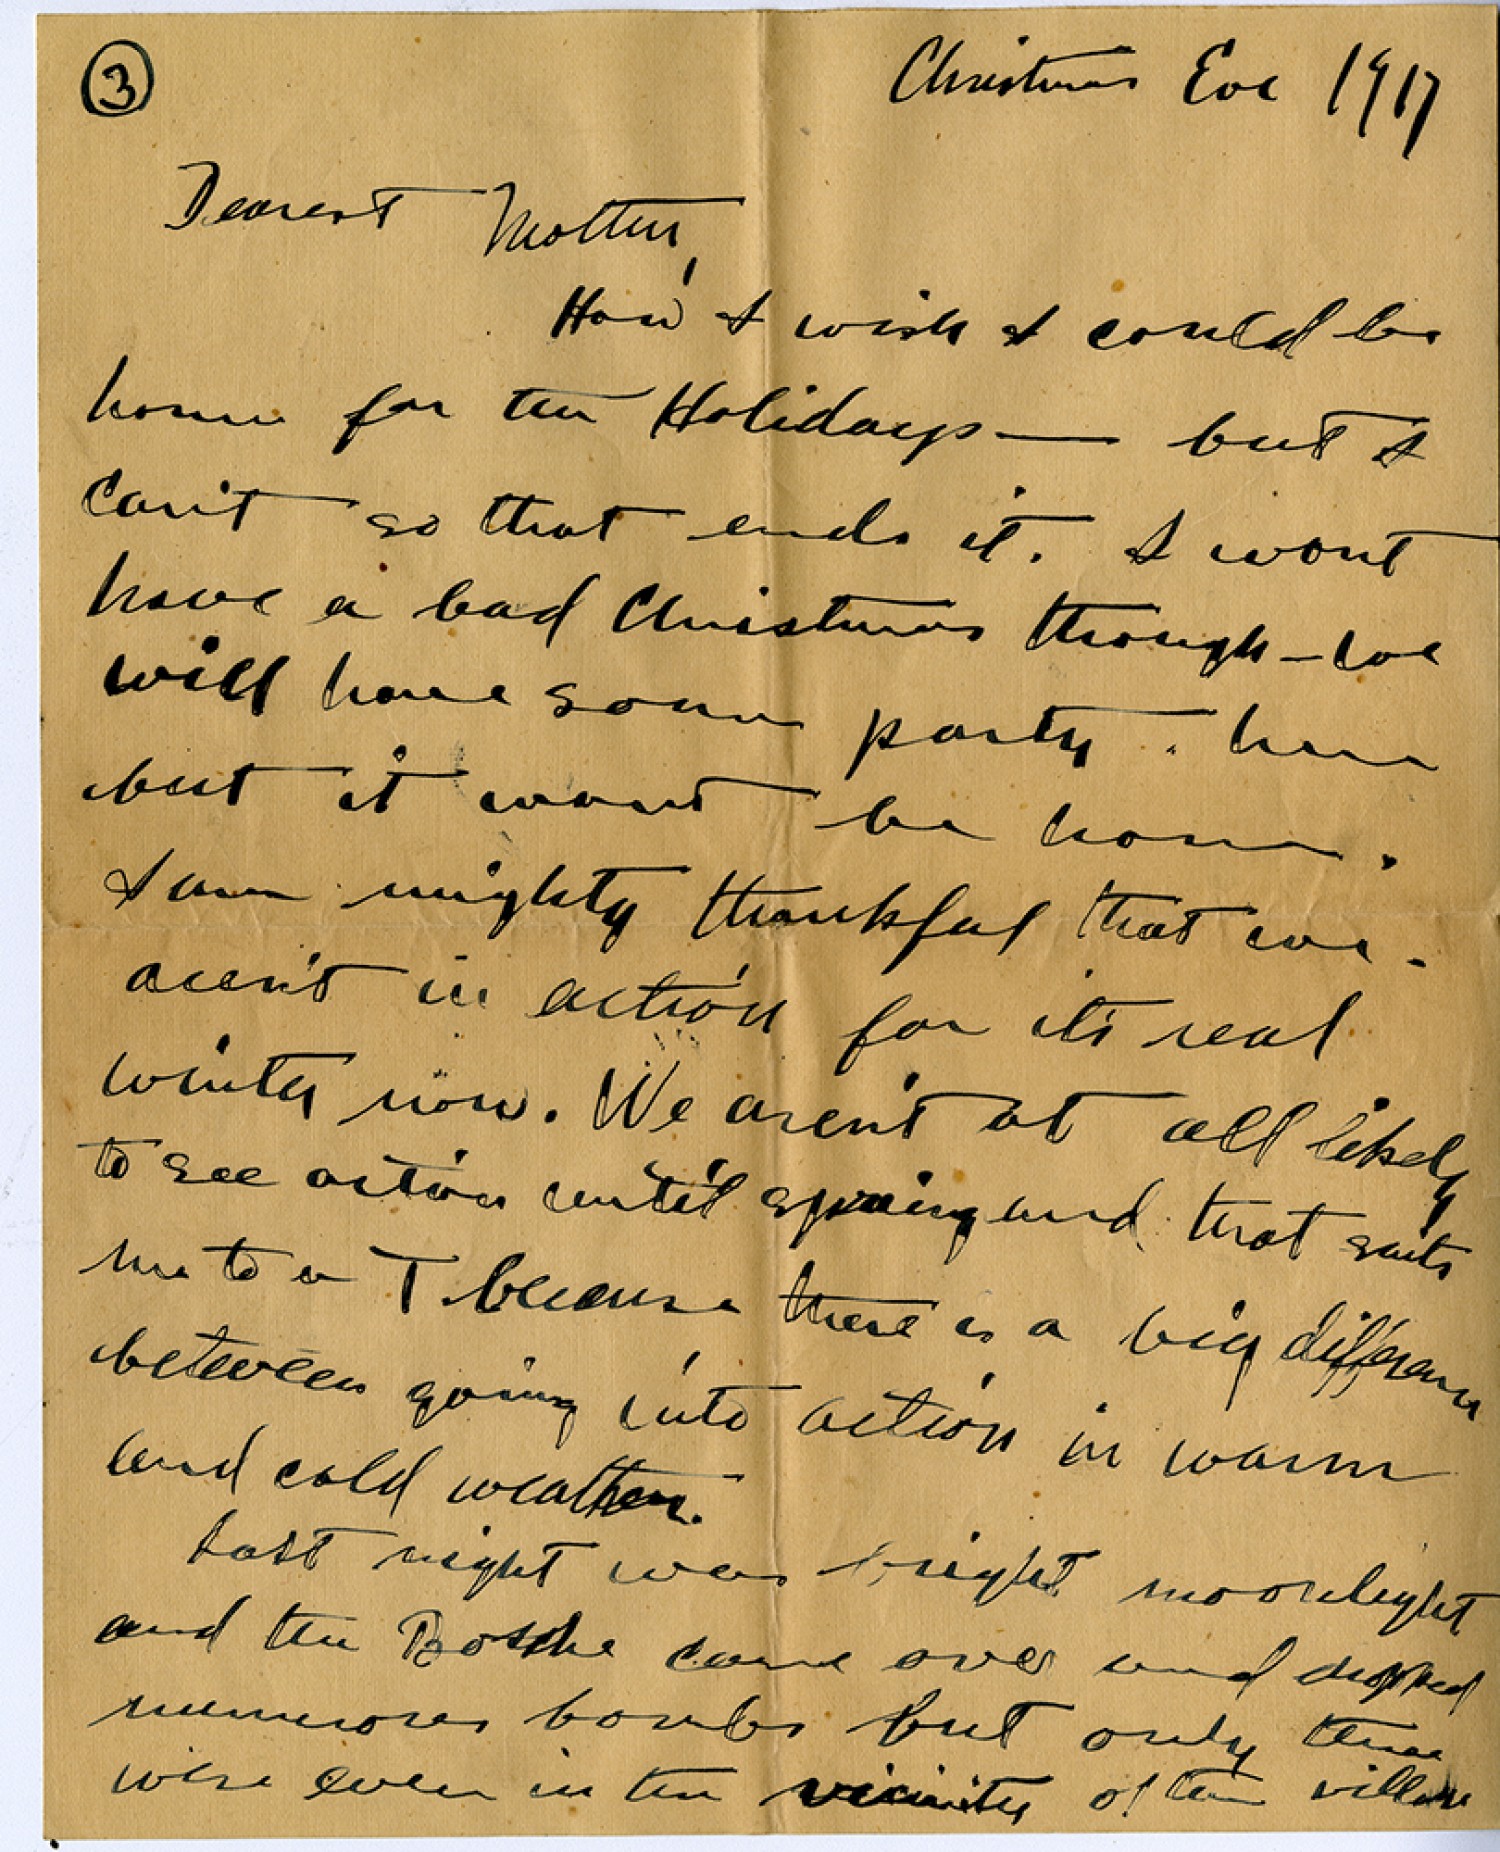 3
Christmas Eve 1917
Dearest Mother,
How I wish I could be
home for the Holidays — but I
can't so that ends it. I wont
have a bad Christmas though — we
will have some party here
but it wont be home.
I am mighty thankful that we
aren't in action for it's real
winter now. We aren't at all likely
to see action until spring and that suits
me to a T because there is a big difference
between going into action in warm
and cold weather.
Last night was bright moonlight
and the Bosche came over and dropped
numerous bombs but only three
were even in the vicinity of the village